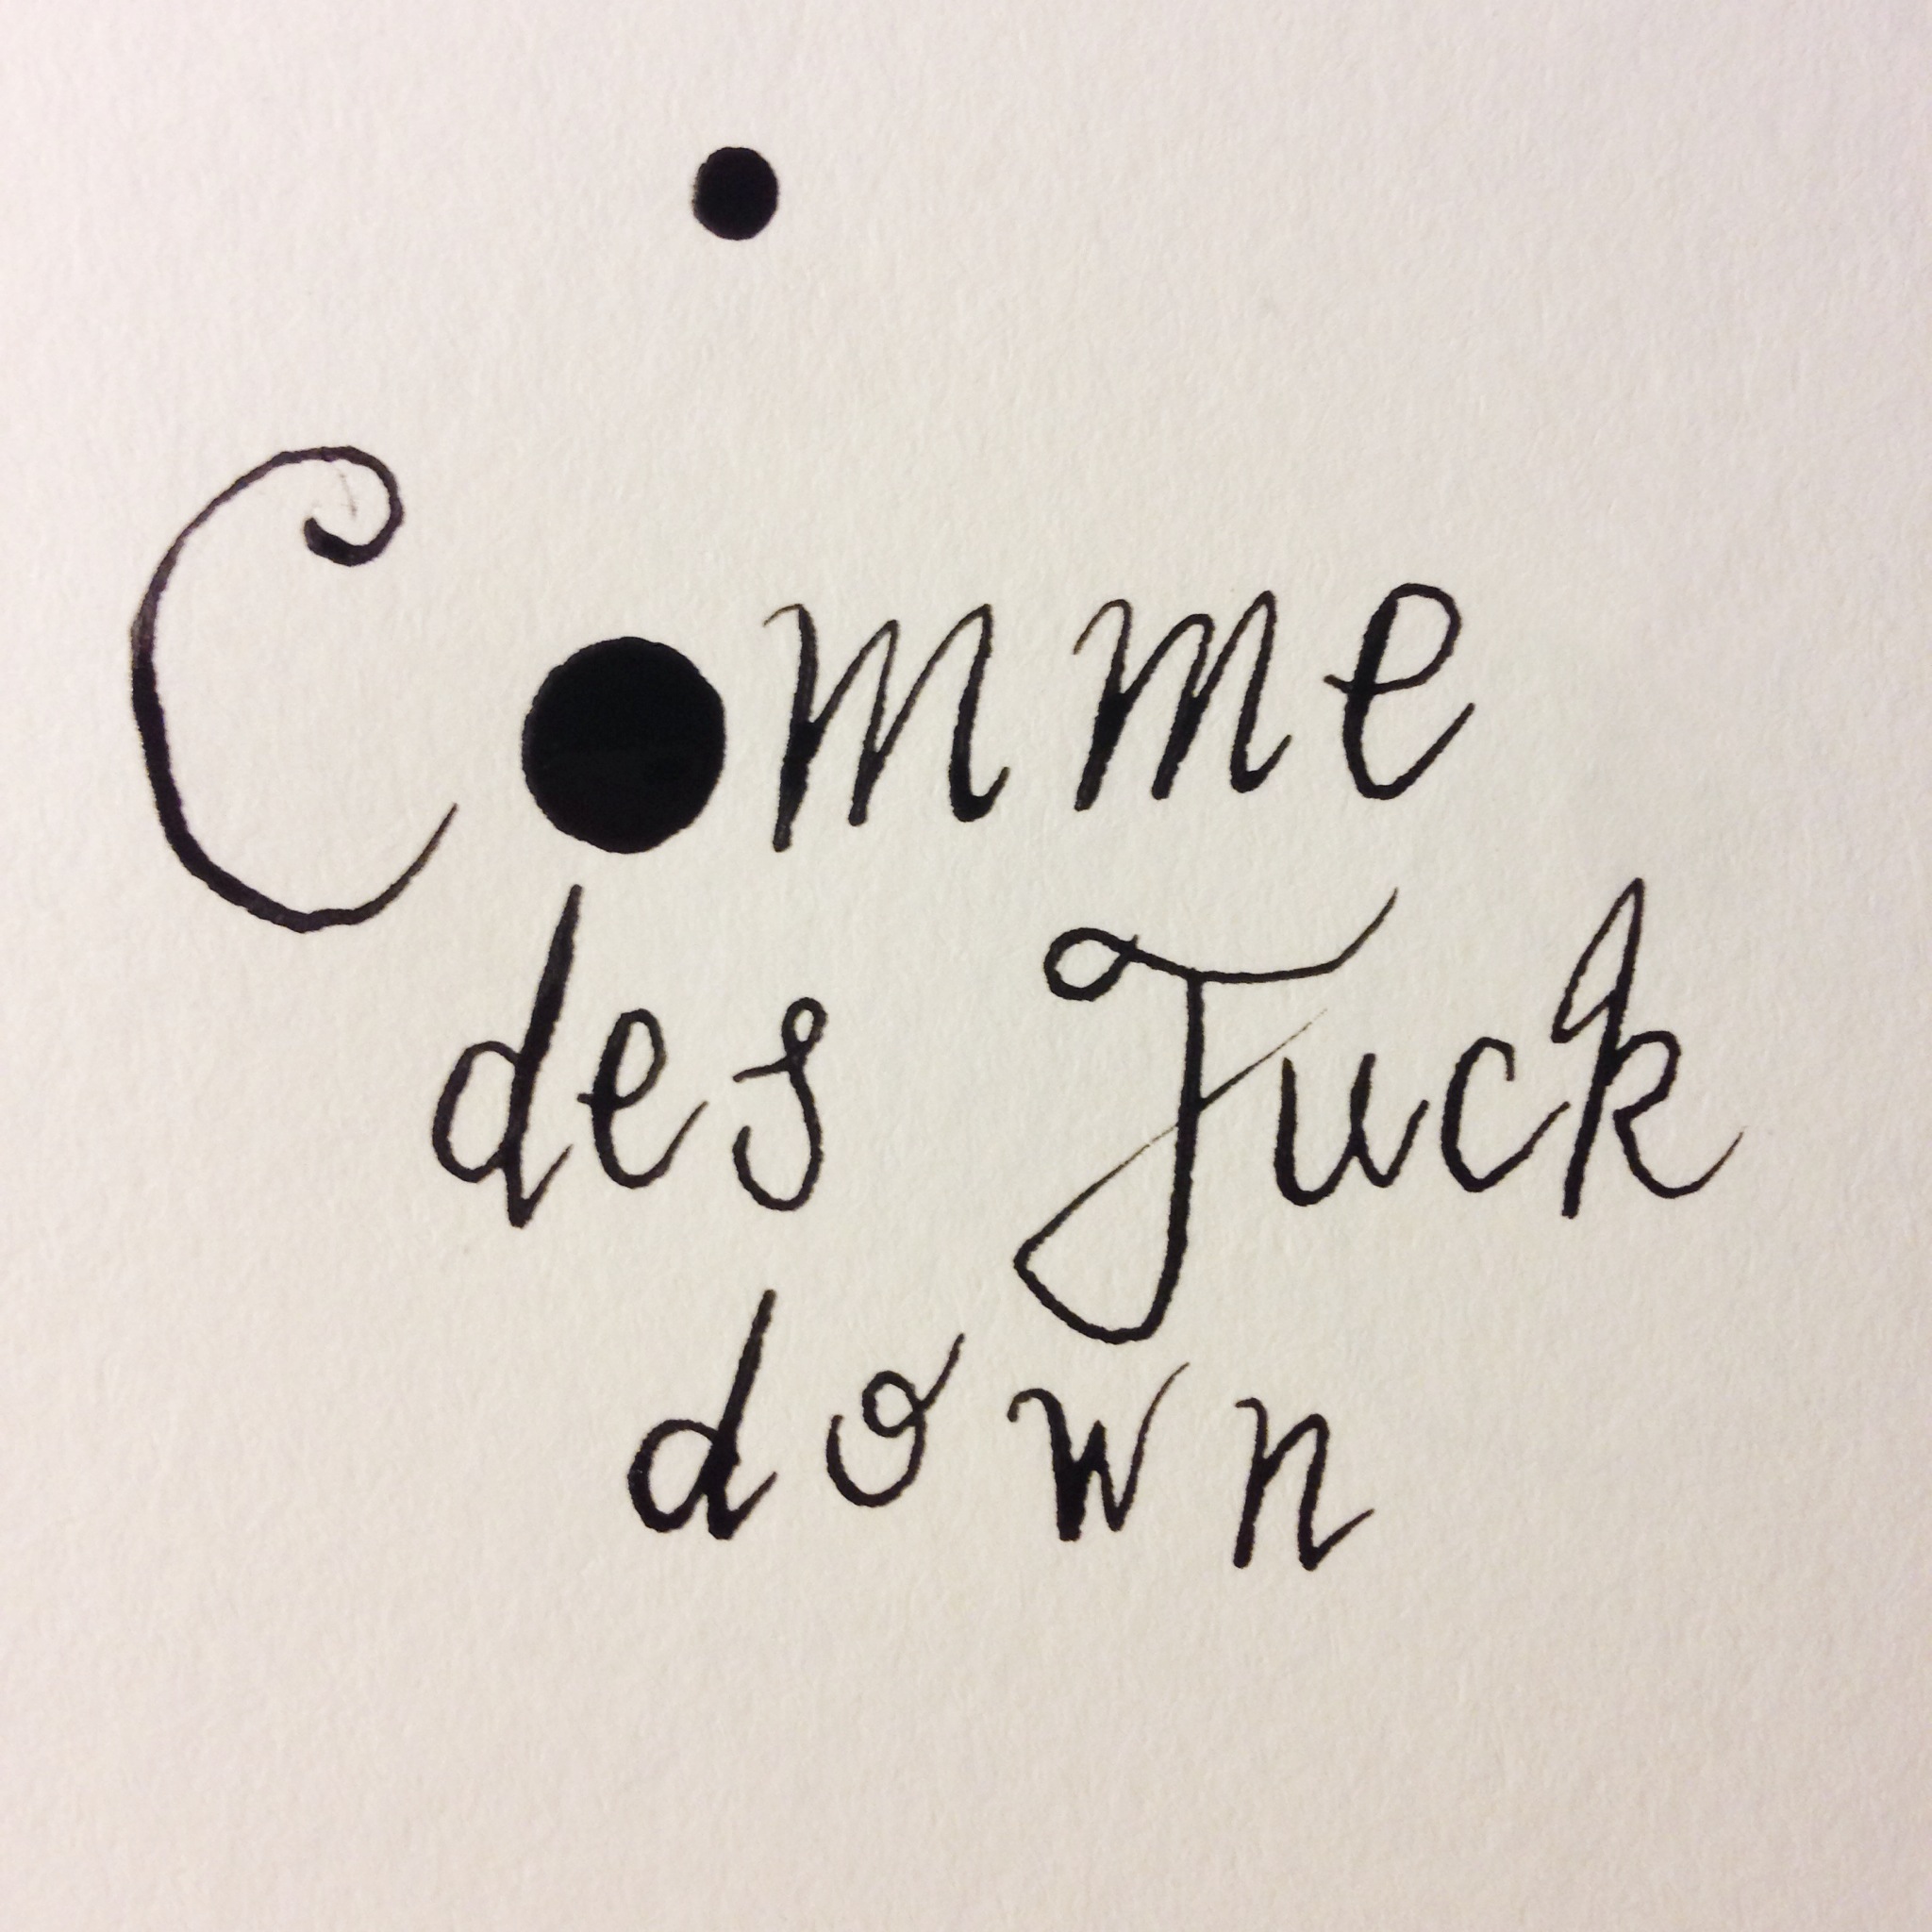 Comme
des Fuck
down